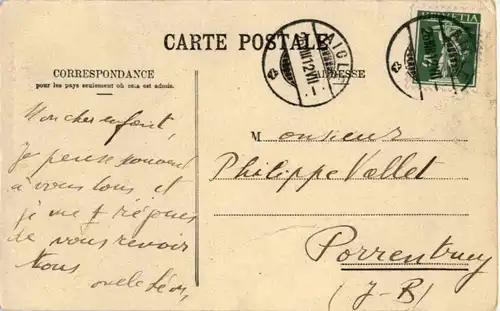 CARTE POSTALE
CORRESPONDANCE
pour les pays seulement où cela est admis.
ADRESSE
HELVETIA
AIGLE
Mon cher enfant,
Je pense souvent
à vous tous et
je me
de vous revoir
tous
oncle Léon,
Monsieur
Philippe Vallet
Porrentruy
(J-B)